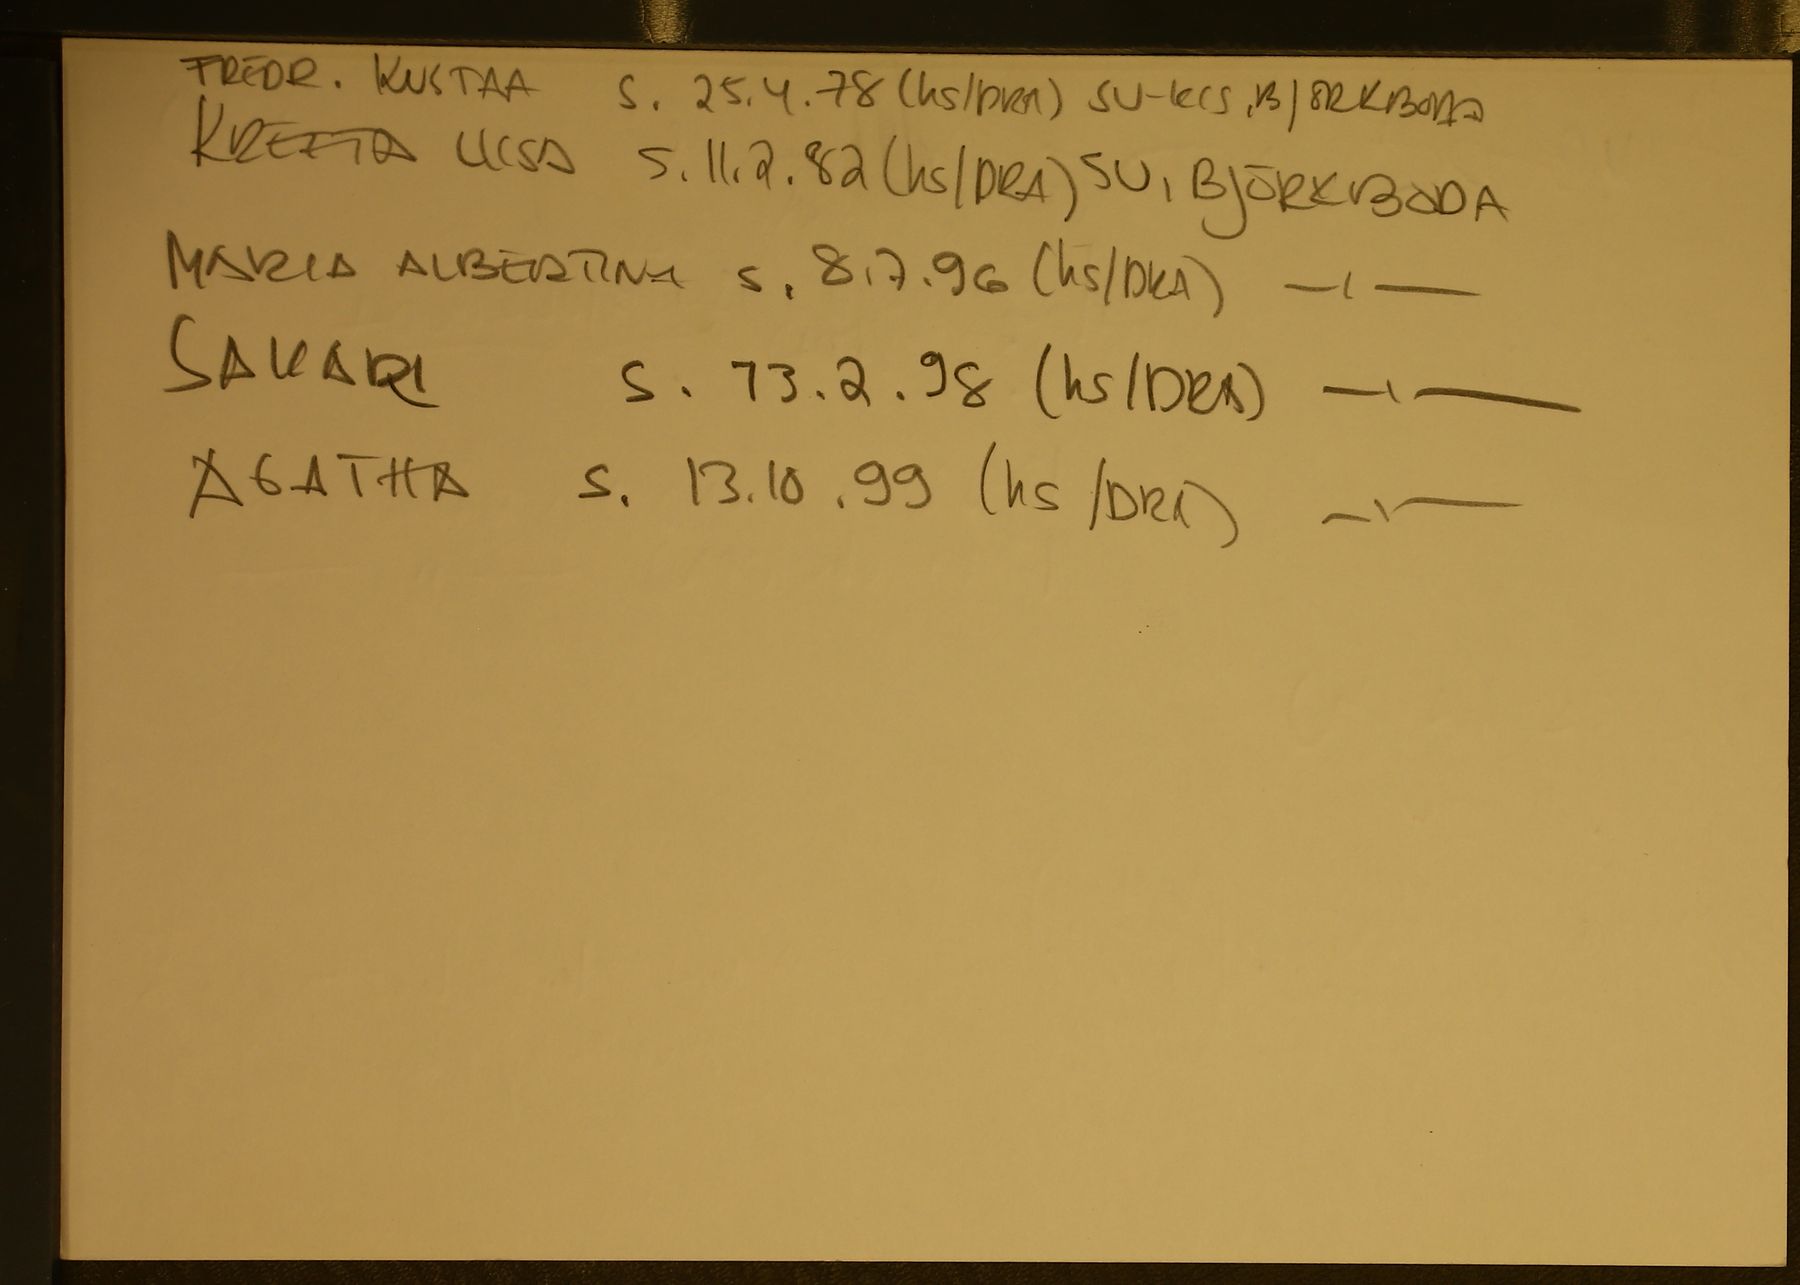 FREDR. KUSTAA S. 25.4.78 (hs/DRA) SU-kcs, BJÖRKBODA
KREETA LIISA S. 11.2.82 (hs/DRA) SU, BJÖRKBODA
MARIA ALBERTINA S. 8.7.96 (hs/DRA) —ı—
SAKARI S. 13.2.98 (hs/DRA) —ı—
AGATHA S. 13.10.99 (hs/DRA) —ı—